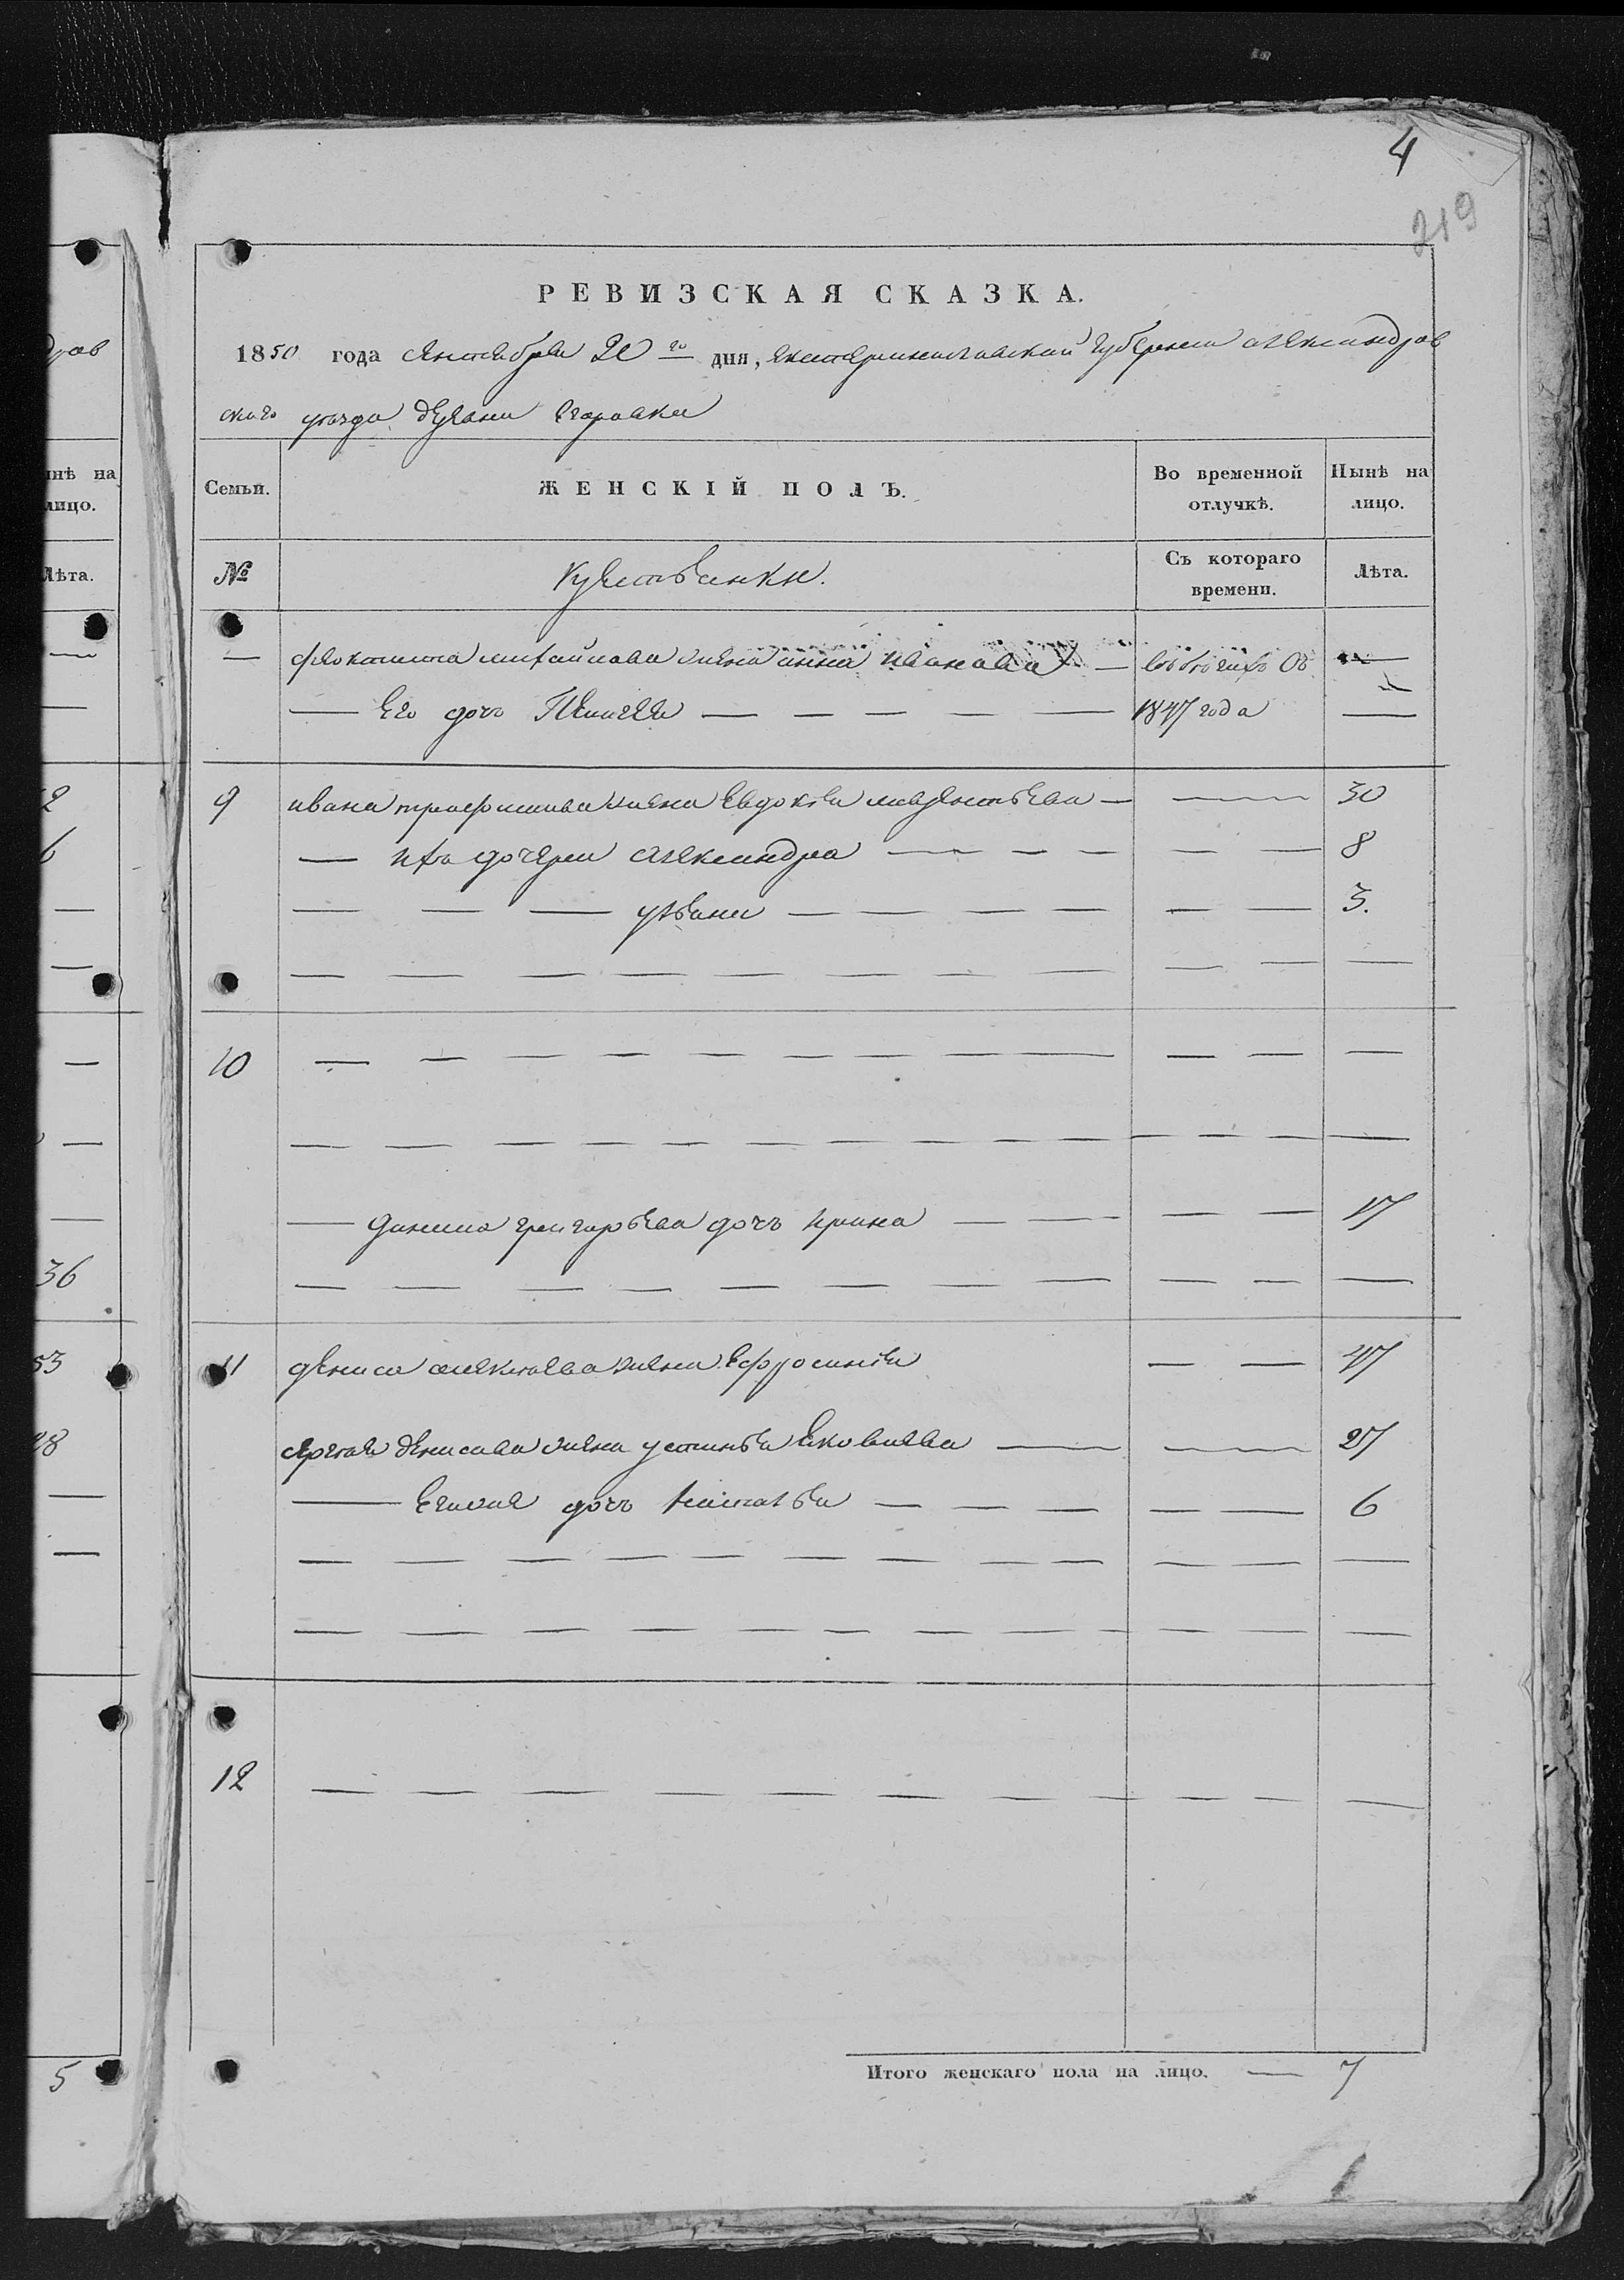 4
219
РЕВИЗСКАЯ СКАЗКА.
1850 года сентебря 20го дня, екатеринославской губернии александров
ского уезда деревни егоровки
Семьи. ЖЕНСКІЙ ПОЛЪ. Во временной отлучкѣ. Нынѣ на лицо.
№ крестьянки. Съ котораго времени. Лѣта.
— феоктиста михайлова жена анна иванова — въ бегахъ съ —
— его дочь — — — — — 1847 года —
9 ивана трофимова жена евдокия — — 30
— ихъ дочери александра — — — — — — 8
— — — ульяна — — — — — — 3.
— — — — — — — — — — —
10 — — — — — — — — — — —
— — — — — — — — — — — —
— данила григорьева дочь ирина — — — — 17
— — — — — — — — — — —
11 дениса алексеева жена ефросиния — — 47
сергея денисова жена устинья яковлева — — 27
— дочь наталья — — — — — 6
— — — — — — — — — — — —
— — — — — — — — — — — —
12 — — — — — — — — — — —
Итого женскаго пола на лицо. — 7
драв
ынѣ на
лицо.
Лѣта.
2
6
36
53
28
5